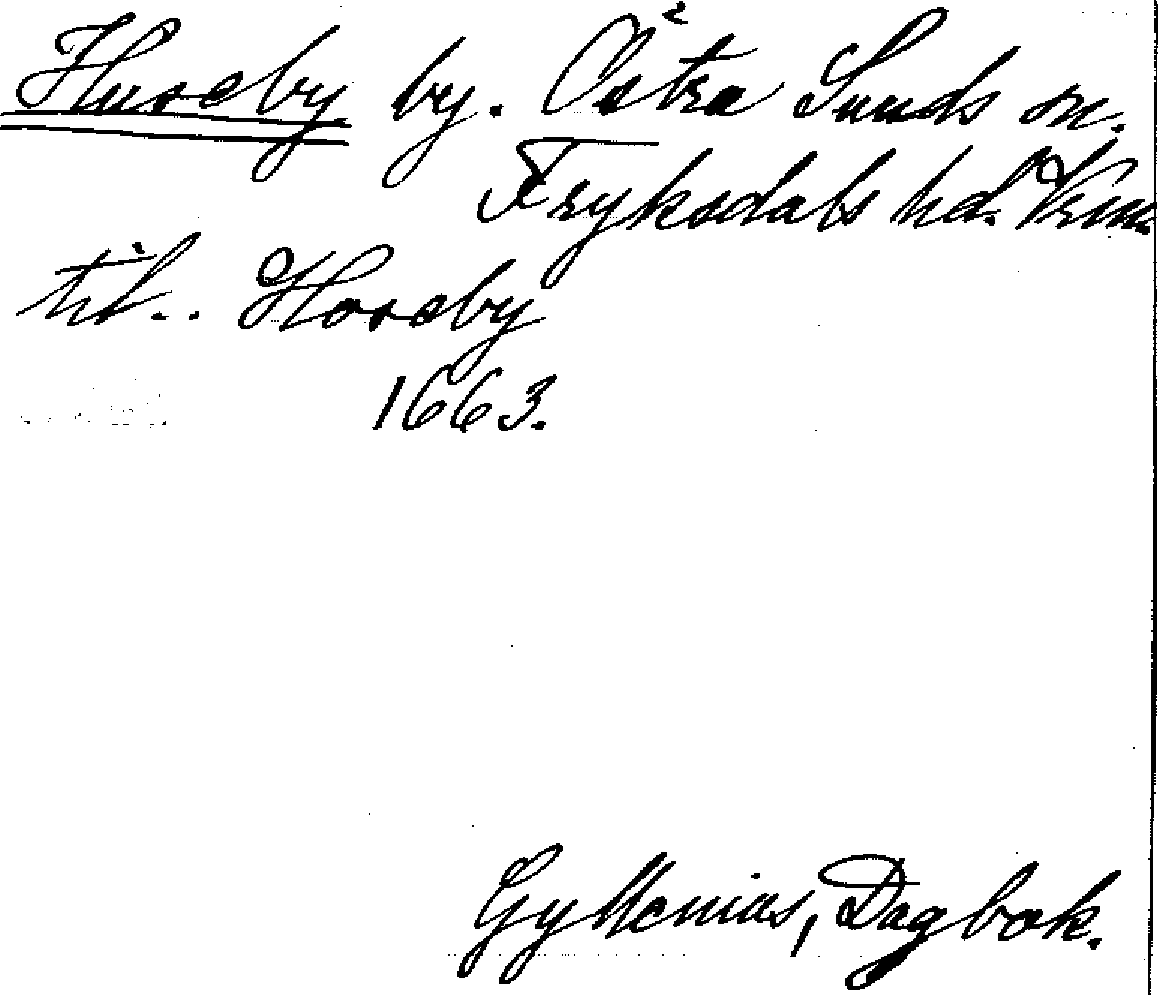 Huseby by. Östra Sunds sn.
Fryksdals hd. Vrm.
till.. Hooseby
1663.
Gyllenius, Dagbok.